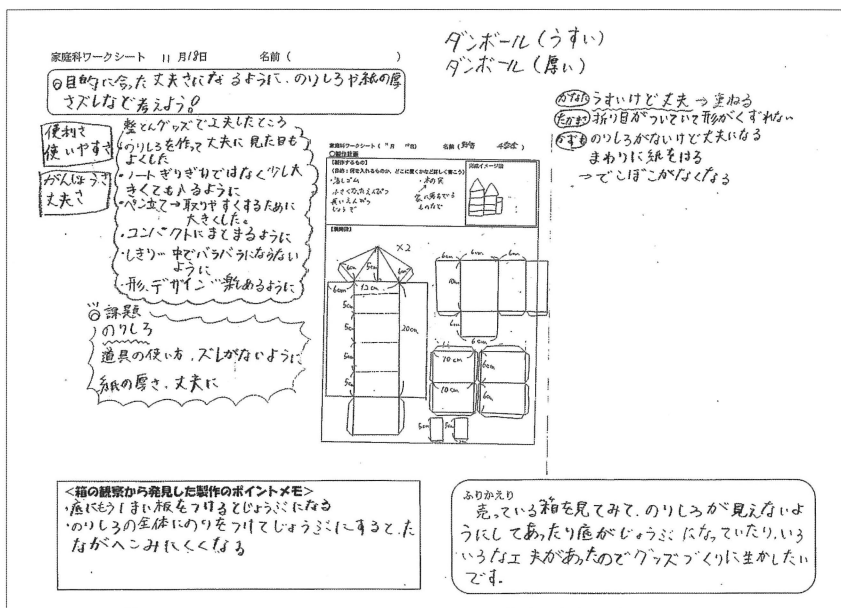 家庭科ワークシート 11月18日 名前( )
◎目的に合った丈夫さになるように、のりしろや紙の厚
さズレなど考えよう!
便利さ
使いやすさ
がんじょうさ
丈夫さ
整とんグッズで工夫したところ
・のりしろを作って丈夫に見た目も
よくした
・ノートぎりぎりではなく少し大
きくても入るように
・ペン立て→取りやすくするために
大きくした。
・コンパクトにまとまるように
・しきり…中でバラバラにならない
ように
・形、デザイン…楽しめるように
◎課題
のりしろ
道具の使い方、ズレがないように
紙の厚さ、丈夫に
家庭科ワークシート(11月 日) 名前(
○製作計画
【製作するもの】
(目的:何を入れるものか、どこに置くかなど詳しく書こう)
・消しゴム
・小さくなったえんぴつ
・長いえんぴつ
じょうぎ
完成イメージ図
【展開図】
×2
6cm 5cm 6cm
6cm 12cm 6cm
5cm
5cm
5cm
5cm
20cm
6cm 6cm 6cm
10cm
6cm
6cm
10cm
10cm
6cm
6cm
5cm 5cm
ダンボール(うすい)
ダンボール(厚い)
かなた うすいけど丈夫→重ねる
たかまさ 折り目がついていて形がくずれない
かずも のりしろがないけど丈夫になる
まわりに紙をはる
→でこぼこがなくなる
<箱の観察から発見した製作のポイントメモ>
・底にもう1まい板をつけるとじょうぶになる
・のりしろの全体にのりをつけてじょうぶにすると、た
ながへこみにくくなる
ふりかえり
売っている箱を見てみて、のりしろが見えないよ
うにしてあったり底がじょうぶになっていたり、いろ
いろな工夫があったのでグッズづくりに生かしたい
です。